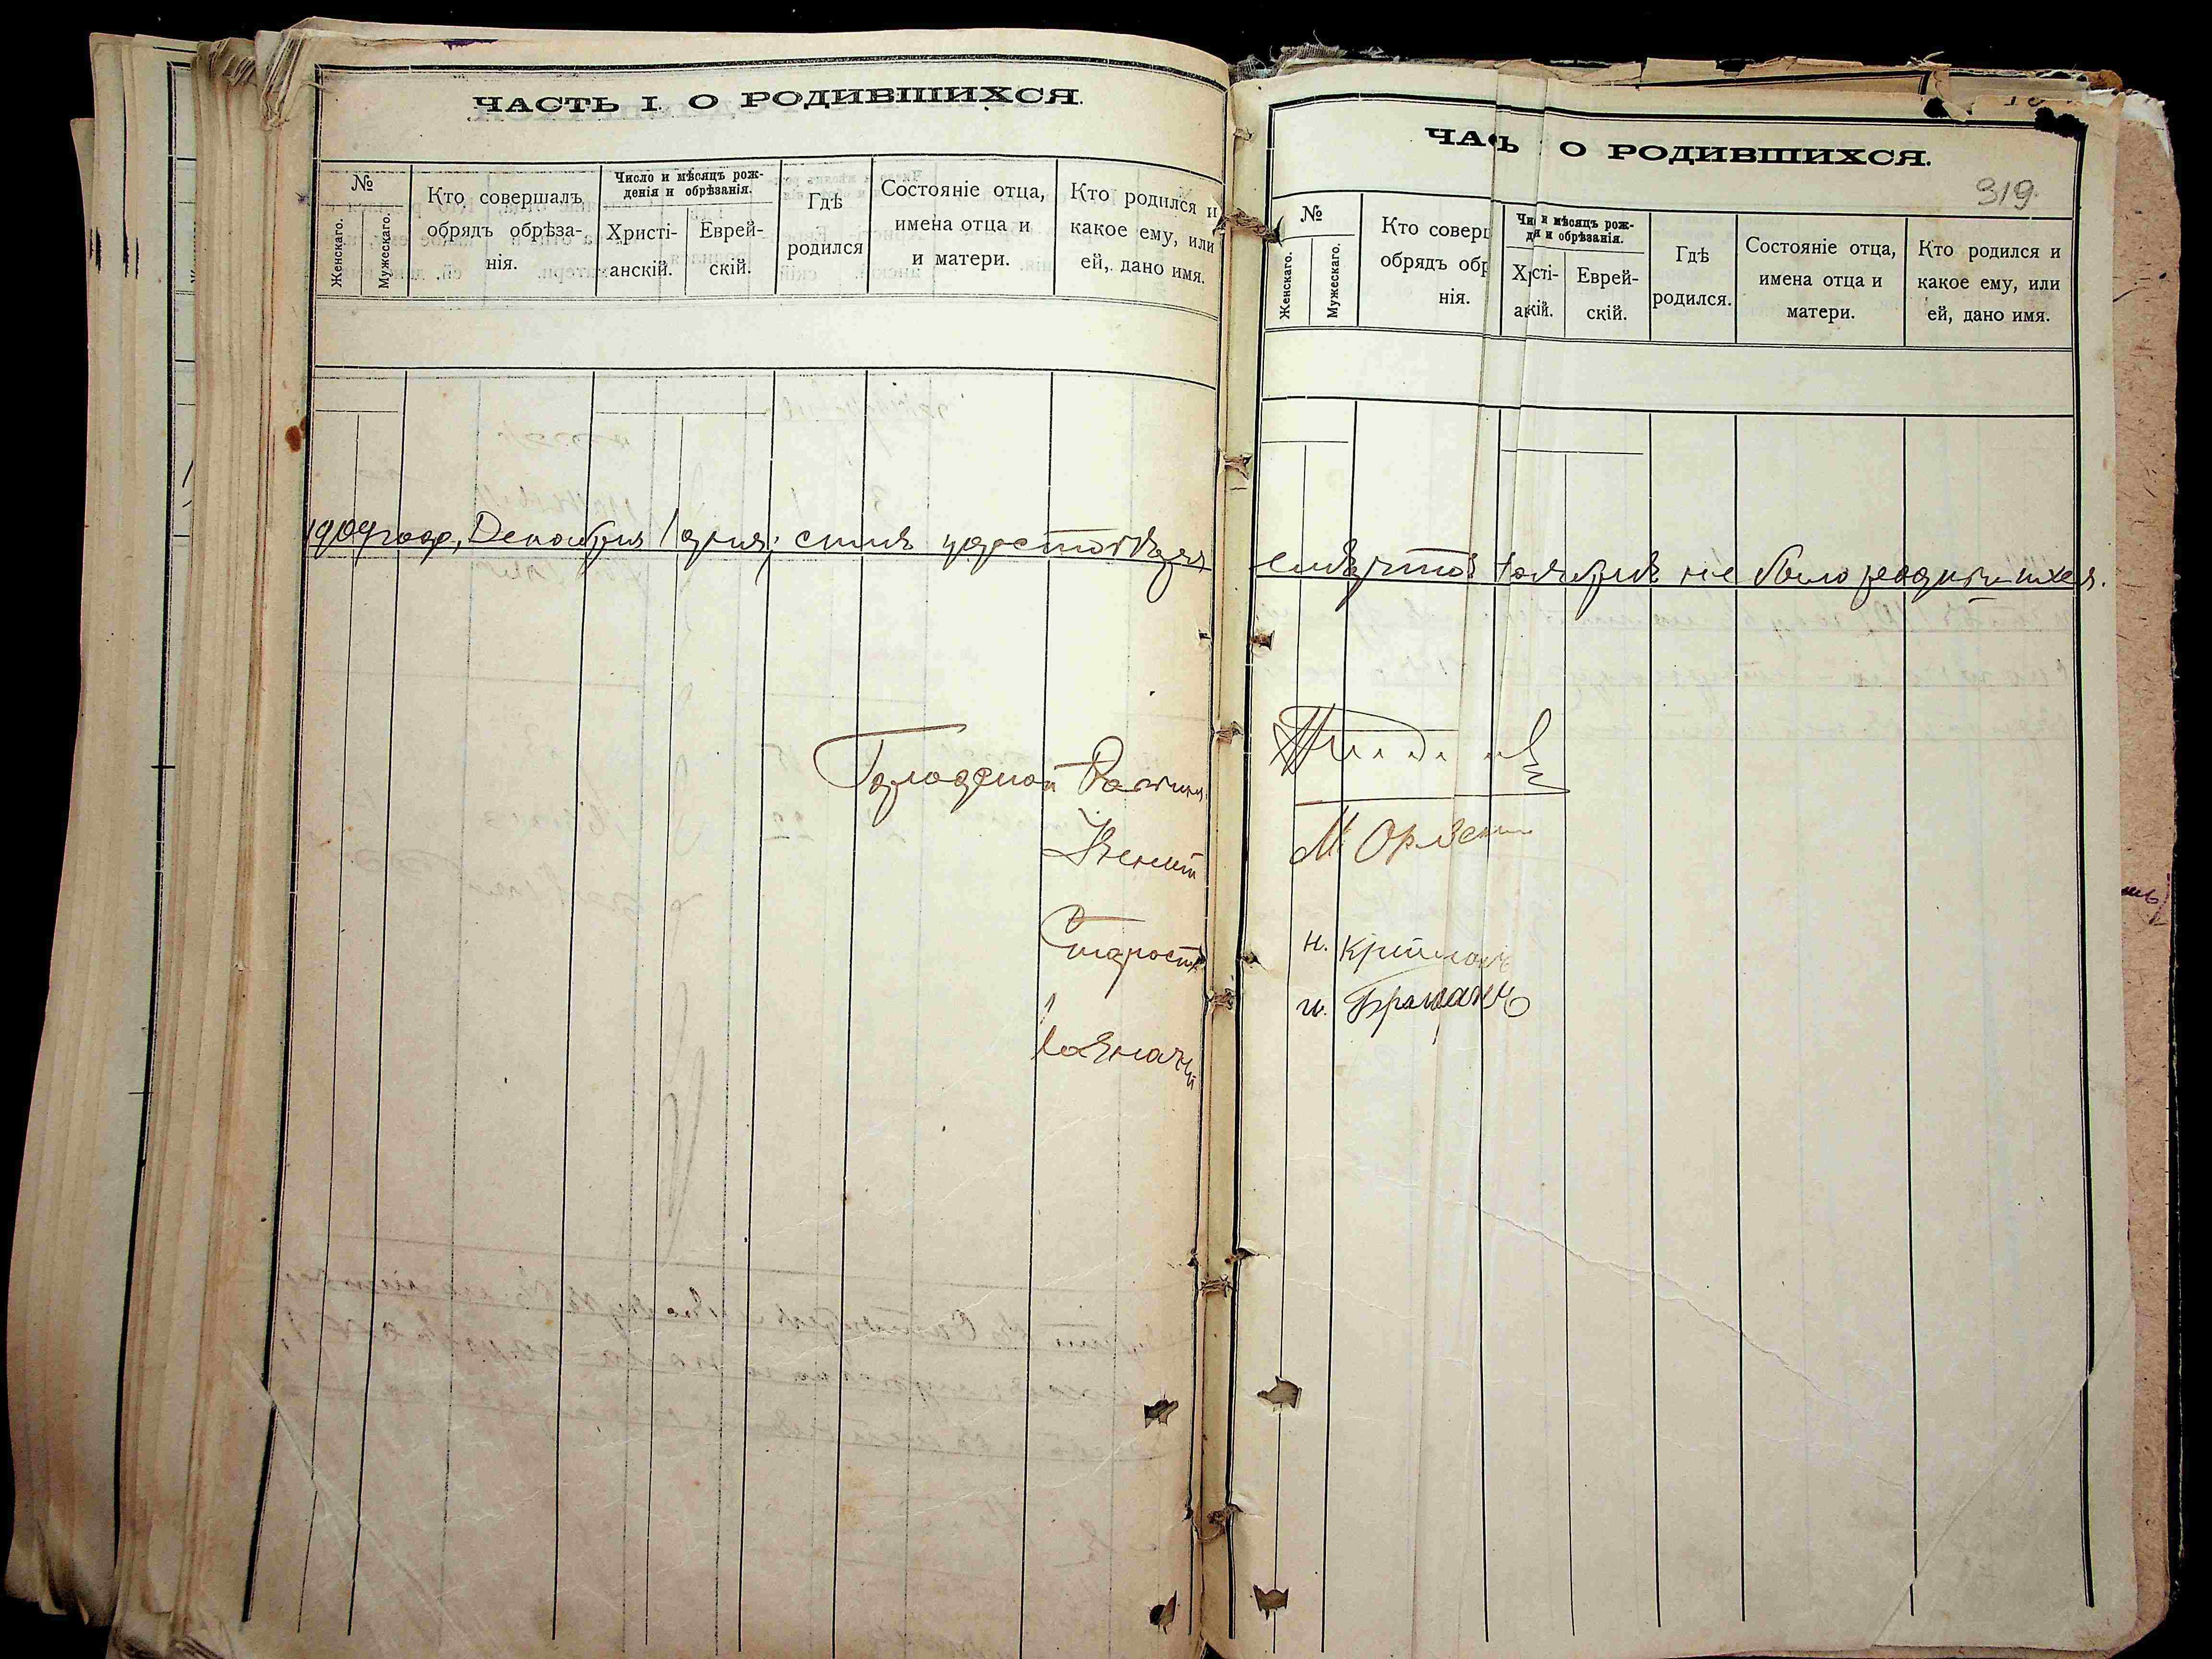 ЧАСТЬ I. О РОДИВШИХСЯ.
№
Женскаго.
Мужескаго.
Кто совершалъ
обрядъ обрѣза-
нія.
Число и мѣсяцъ рож-
денія и обрѣзанія.
Христі-
анскій.
Еврей-
скій.
Гдѣ
родился
Состояніе отца,
имена отца и
и матери.
Кто родился и
какое ему, или
ей, дано имя.
1909 года, Декабря 1 дня; симъ удостовѣряя
Городской Раввинъ
Ученый
Староста
Казначей
ЧА Ь О РОДИВШИХСЯ.
319.
№
Женскаго.
Мужескаго.
Кто соверш
обрядъ обр
нія.
Чи и мѣсяцъ рож-
д я и обрѣзанія.
Х сті-
а кій.
Еврей-
скій.
Гдѣ
родился.
Состояніе отца,
имена отца и
матери.
Кто родился и
какое ему, или
ей, дано имя.
Ноябрѣ не было родившихся.
М
Н.